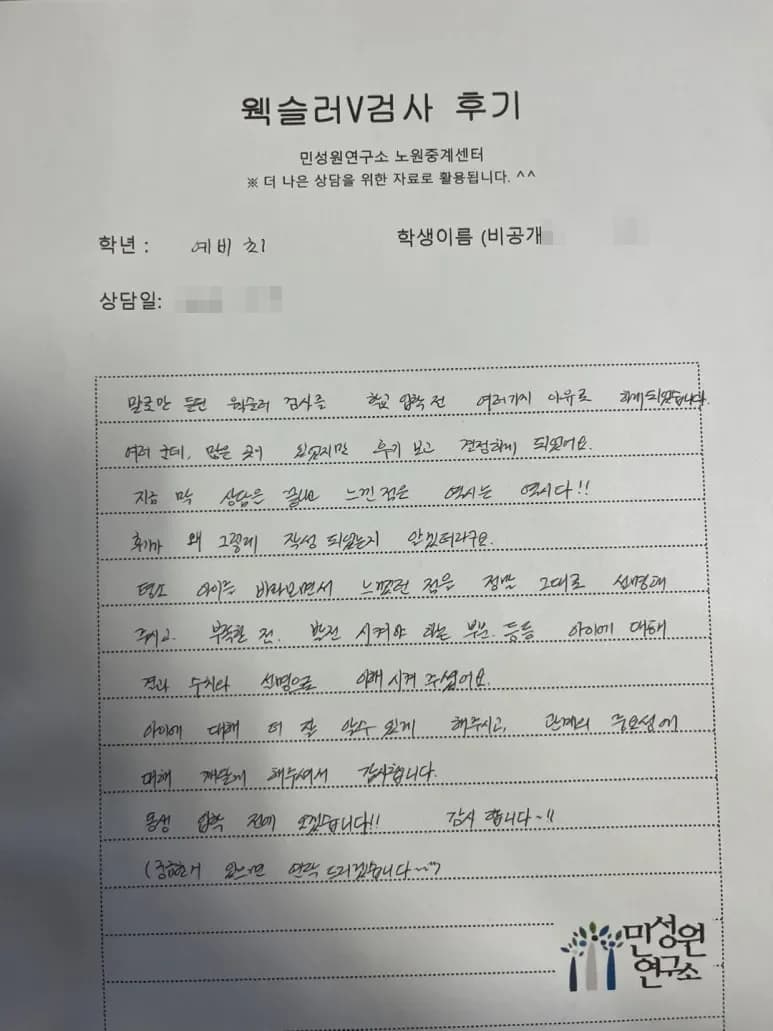 웩슬러V검사 후기
민성원연구소 노원중계센터
※ 더 나은 상담을 위한 자료로 활용됩니다. ^^
학년 : 예비 초1 학생이름 (비공개
상담일:
말로만 듣던 웩슬러 검사를 학교 입학 전 여러가지 이유로 하게 되었습니다.
여러 군데, 많은 곳이 있었지만 후기 보고 결정하게 되었어요.
지금 막 상담은 끝나고 느낀 점은 역시는 역시다!!
후기가 왜 그렇게 작성 되었는지 알겠더라구요.
평소 아이를 바라보면서 느꼈던 점을 정말 그대로 설명해
주시고. 부족한 점. 발전 시켜야 하는 부분. 등등 아이에 대해
결과 수치와 설명으로 이해 시켜 주셨어요.
아이에 대해 더 잘 알수 있게 해주시고, 관계의 중요성에
대해 깨닫게 해주셔서 감사합니다.
동생 입학 전에 오겠습니다!! 감사 합니다~!!
(궁금한거 있으면 연락 드리겠습니다~^^)
민성원
연구소